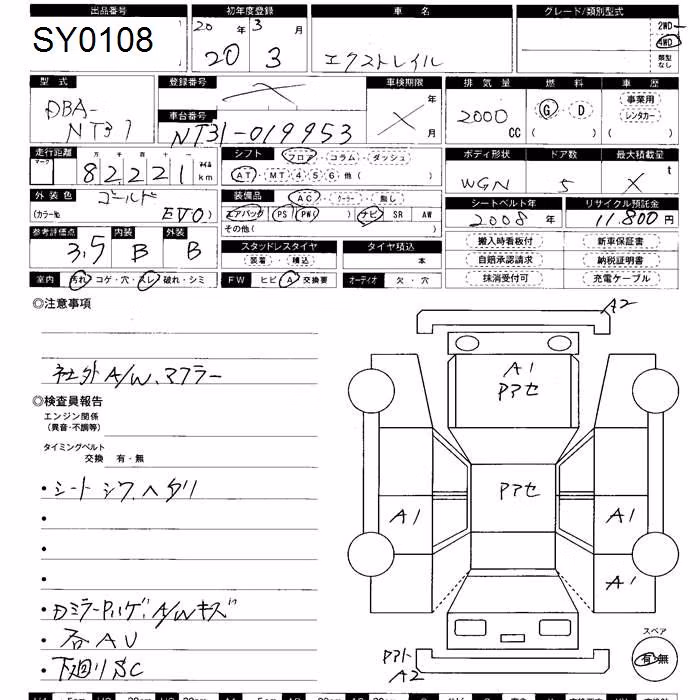 出品番号 初年度登録 車名 グレード/類別型式
SY0108 20年 3月 2WD
20 3 エクストレイル 4WD
類型なし
型式 登録番号 車検期限 排気量 燃料 車歴
DBA- 年 2000 G D 事業用
NT31 車台番号 月 CC ( ) レンタカー
NT31-019953 ( )
走行距離 シフト フロア・コラム・ダッシュ ボディ形状 ドア数 最大積載量
マーク 十万 万 千 マイル AT・MT 4 5 6 他( ) t
82221 km WGN 5 X
外装色 ゴールド 装備品 AC・クーラー・無し シートベルト年 リサイクル預託金
(カラーNo. EV0) エアバッグ( ) PS PW( ) ナビ SR AW 2008年 11.800円
参考評価点 内装 外装 その他( ) 搬入時看板付 新車保証書
3.5 B B スタッドレスタイヤ タイヤ積込 自賠承認請求 納税証明書
装着・積込 本 抹消受付可 充電ケーブル
室内 汚れ・コゲ・穴・スレ・破れ・シミ FW ヒビ A 交換要 オーディオ 欠・穴
◎注意事項
A2
社外A/W、マフラー
A1
Pアセ
◎検査員報告
エンジン関係
(異音・不調等)
タイミングベルト
交換 有・無
・シート シワ、ヘタリ
Pアセ
A1 A1
A1
・DミラーPハゲ、A/Wキズ
・各AU
・下廻りSC
スペア
有・無
A2